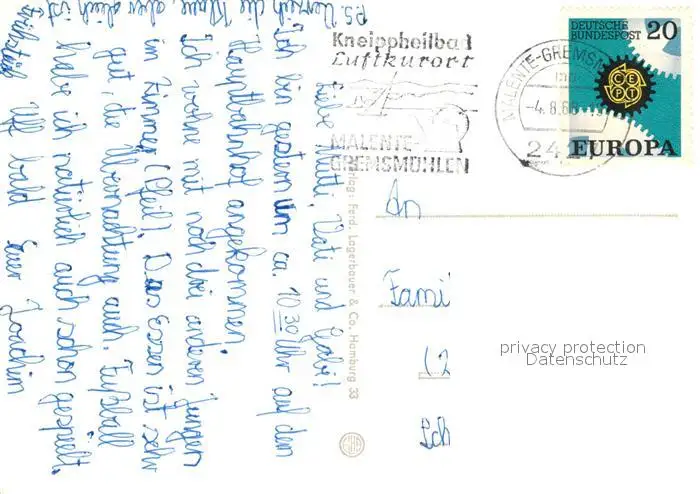 P.S. Verzeih die Klaue, aber doch ist Frühstück
Liebe Mutti, Vati und Gabi!
Ich bin gestern um ca. 10 30 Uhr auf dem
Hauptbahnhof angekommen.
Ich wohne mit noch drei anderen Jungen
im Zimmer (Pfeil). Das Essen ist sehr
gut, die Übernachtung auch. Fußball
habe ich natürlich auch schon gespielt.
bald
Euer Joachim
Kneippheilbad
Luftkurort
MALENTE-
GREMSMÜHLEN
MALENTE-GREMSM
-4.8.68
242
DEUTSCHE
BUNDESPOST 20
CEPT
EUROPA
Verlag: Ferd. Lagerbauer & Co. Hamburg 33
An
Fami
(2
privacy protection
Datenschutz